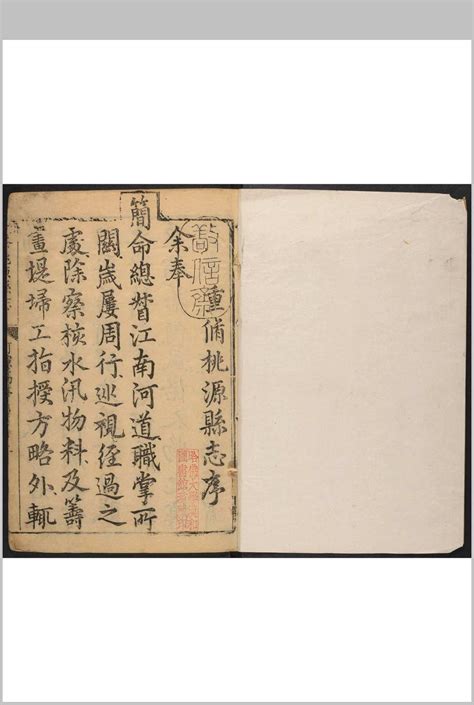 重脩桃源縣志序
余奉
簡命總督江南河道職掌所
關歲屢周行巡視徑過之
處除察核水汛物料及籌
畫堤埽工指授方略外輒